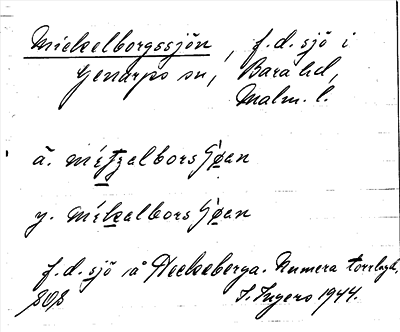 Mickelborgssjön, f.d. sjö i
Genarps sn, Bara hd,
Malm. l.
ä. mitzelbors
y. mikelbors
f.d. sjö å Heckeberga. Numera torrlagd.
I. Ingers 1944.